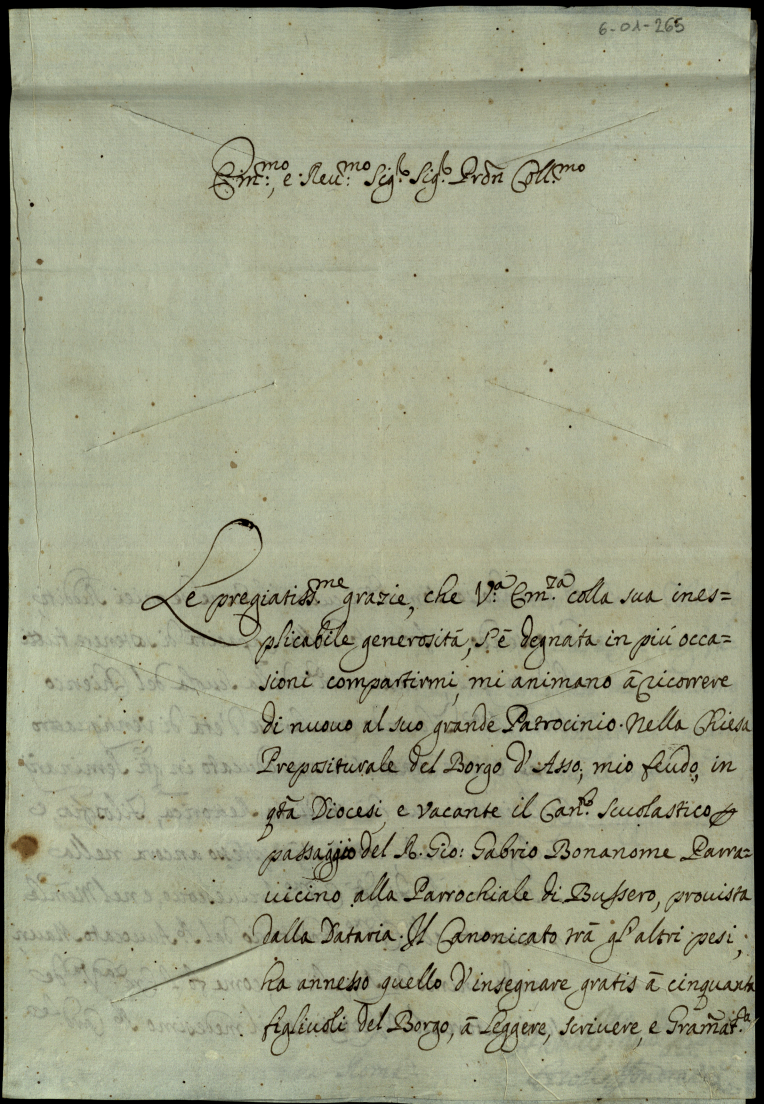 6-01-265
Em:mo, e Reu:mo Sig:r Sig:r Prõn Coll:mo
Le pregiatiss:me grazie, che V:a Em:za colla sua ines=
plicabile generosità, s'è degnata in più occa=
sioni compartirmi, mi animano à ricorrere
di nuouo al suo grande Patrocinio. Nella Chiesa
Prepositurale del Borgo d'Asso, mio feudo, in
q̃ta Diocesi, e vacante il Can:to Scuolastico p
passaggio del R: Gio: Gabrio Bonanome Parra=
uicino alla Parrochiale di Bussero, prouista
dalla Dataria. Il Canonicato trà gl'altri pesi,
ha annesso quello d'insegnare gratis à cinquanta
figliuoli del Borgo, à Leggere, scriuere, e Gram̃at:ca